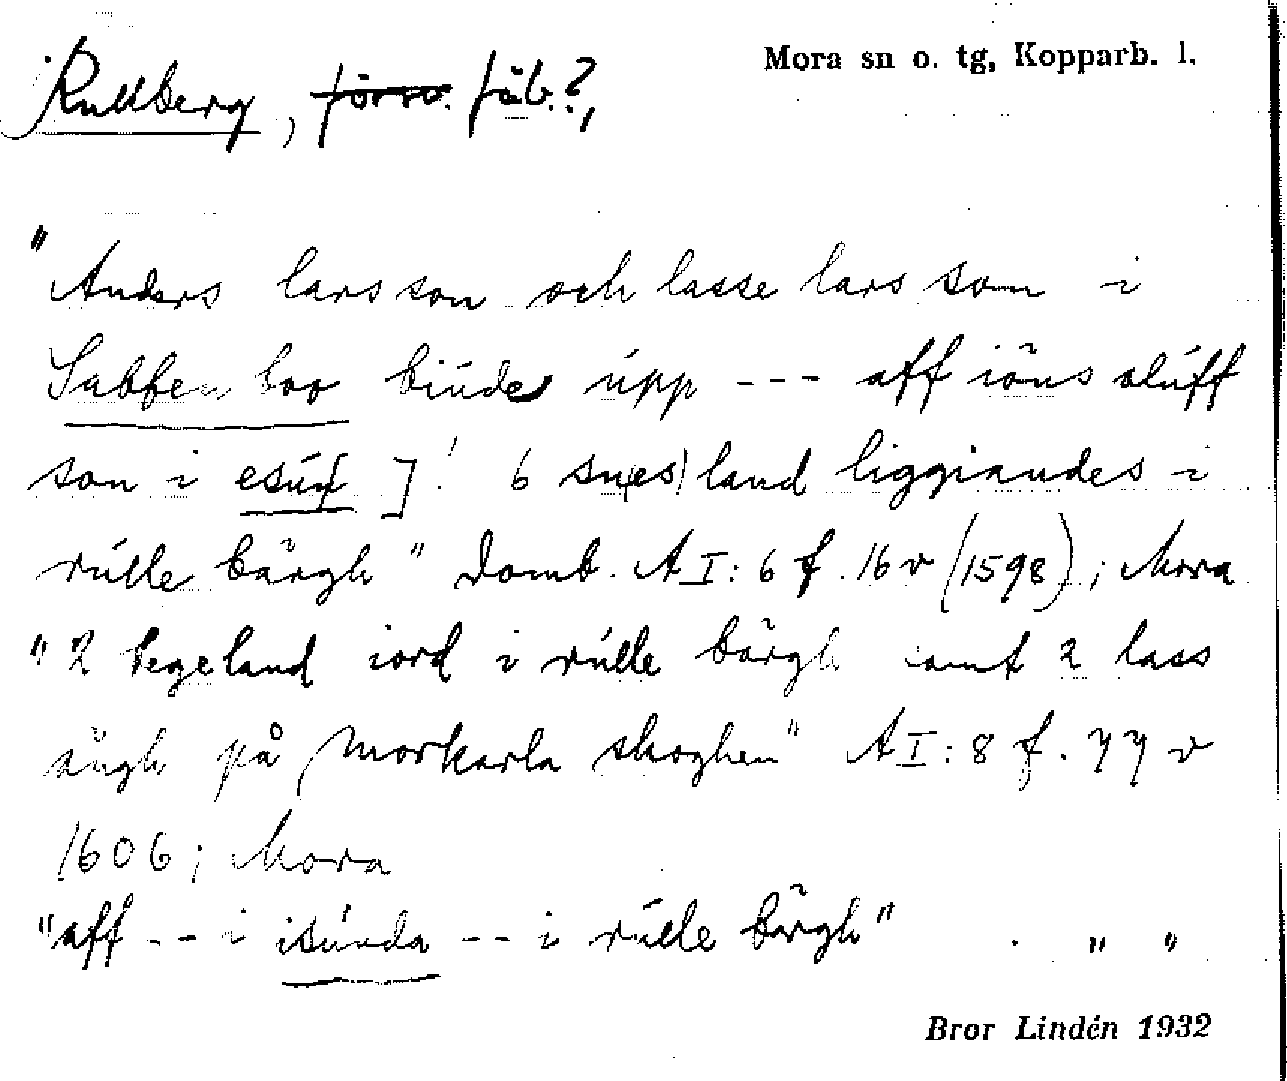 Mora sn o. tg, Kopparb. l.
Rullberg, försv. fäb.?,
"Anders larsson och lasse lars son i
Sabben boo biúder úpp --- aff iöns olúff
son i esún ]! 6 sn(es)land liggiandes i
rúlle bärgh" Domb. A I: 6 f. 16 v (1598); Mora
"2 tegeland iord i rúlle bärgh samt 2 lass
ängh på Morkarla skoghen" A I: 8 f. 77 v
1606; Mora
"aff -- i isúnda -- i rúlle bärgh" . " "
Bror Lindén 1932